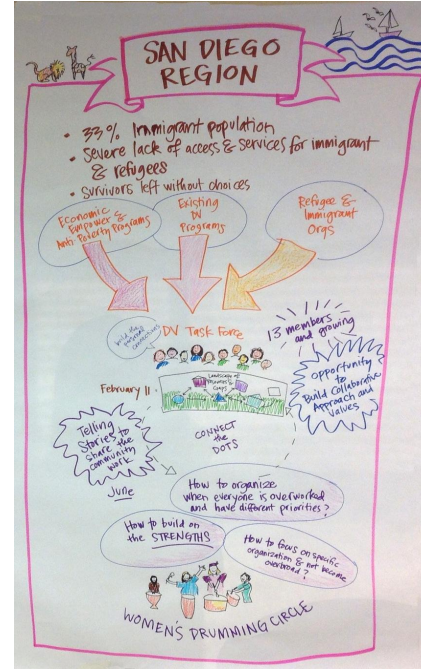 SAN DIEGO
REGION
• 33% Immigrant population
• Severe lack of access & services for immigrant
& refugees
• survivors left without choices
Economic
Empower &
Anti Poverty Programs
Existing
DV
Programs
Refugee &
Immigrant
Orgs
build the
connections
DV Task Force
13 members
and growing
Landscape of
Resources &
Gaps
February 11
opportunity
to
Build Collaborative
Approach and
Values
Telling
Stories to
share the
community
work
June
CONNECT
the
DOTS
How to organize
when everyone is overworked
and have different priorities?
How to build on
the STRENGTHS
How to focus on specific
organization & not become
overbroad?
WOMEN'S DRUMMING CIRCLE